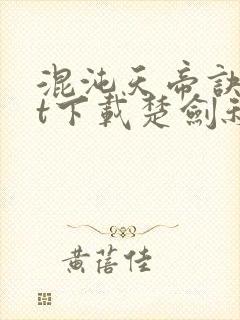 混沌天帝訣
t下載楚劍
黃蓓佳